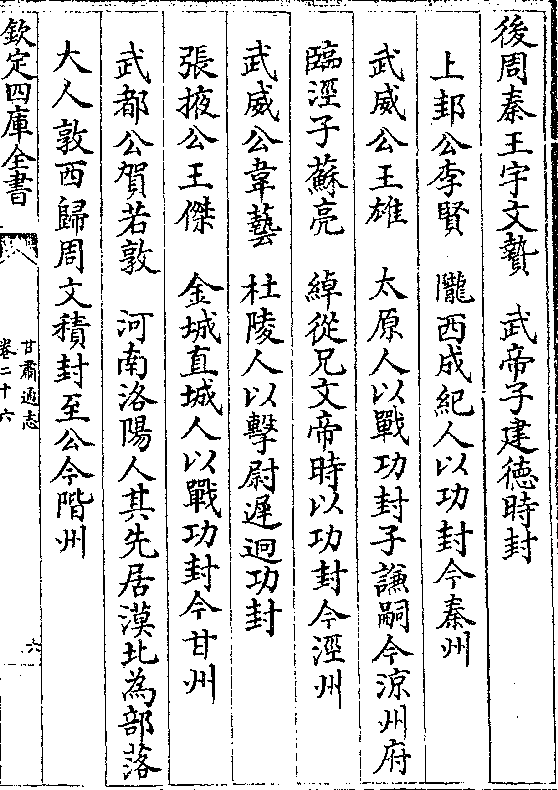 後周秦王宇文贄　武帝子建徳時封
上邽公李賢　隴西成紀人以功封今秦州
武威公王雄　太原人以戰功封子謙嗣今涼州府
臨涇子蘇亮　綽從兄文帝時以功封今涇州
武威公韋藝　杜陵人以擊尉遲迥功封
張掖公王傑　金城直城人以戰功封今甘州
武都公賀若敦　河南洛陽人其先居漠北為部落
大人敦西歸周文積封至公今階州
欽定四庫全書
甘肅通志
卷二十六
六